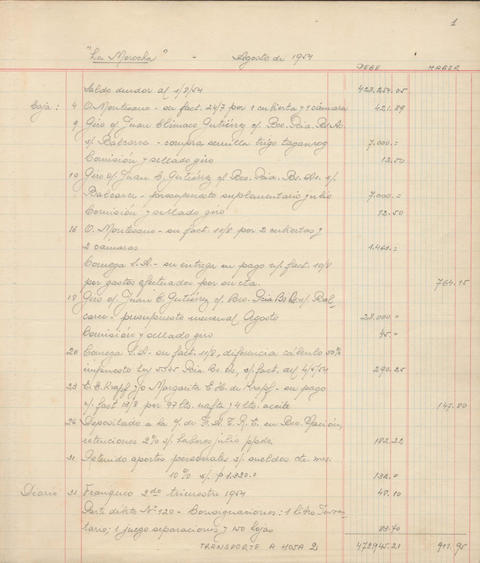 1
"La Morocha" - Agosto de 1954
DEBE HABER
Saldo deudor al 1/8/54 423.254.05
Caja: 4 O. Montesano - su fact. 24/7 por 1 cubierta y 1 cámara 421.89
9 Giro o/ Juan Climaco Gutiérrez c/ Bco. Pcia. Bs. As.
s/ Balcarce - compra semilla trigo taganrog 7.000.=
Comisión y sellado giro 12.50
10 Giro o/ Juan C. Gutiérrez c/ Bco. Pcia. Bs. As. s/
Balcarce - presupuesto suplementario julio 7.000.=
Comisión y sellado giro 12.50
16 O. Montesano - su fact. 10/8 por 2 cubiertas y
2 cámaras 1.460.=
Comega S.A. - su entrega en pago n/ fact. 10/8
por gastos efectuados por su cta. 764.15
18 Giro o/ Juan C. Gutiérrez c/ Bco. Pcia Bs As s/ Bal-
carce - presupuesto mensual Agosto 28.000.=
Comisión y sellado giro 45.=
20 Comega S.A. - su fact. 11/8, diferencia cálculo 50%
impuesto ley Pcia Bs. As, s/ fact. del 4/5/54 290.25
23 y/o Margarita E. H. de - su pago
n/ fact 19/8 por lts. nafta y 4 lts. aceite 147.80
24 Depositado a la o/ de en Bco. Nación,
retenciones 2% s/ haberes julio ppdo. 182.22
31 Retenido aportes personales s/ sueldos cte. mes.
10% s/. $ 1.320.= 132.=
Diario: 31 Franqueo 2do trimestre 1954 48.10
Parte diario Nº 120 - Consignaciones: 1 litro
; 1 juego separaciones y 150 hojas 89.70
TRANSPORTE A HOJA 2 472945.21 911.95